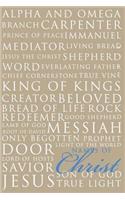 ALPHA AND OMEGA
BRANCH CARPENTER
PRINCE OF PEACE IMMANUEL
MEDIATOR LIVING BREAD
JESUS THE CHRIST SHEPHERD
WORD EVERLASTING FATHER
CHIEF CORNERSTONE TRUE VINE
KING OF KINGS
CREATOR BELOVED
BREAD OF LIFE ROCK
REDEEMER GOOD SHEPHERD
LAMB OF GOD
ROOT OF DAVID MESSIAH
ONLY BEGOTTEN PROPHET
DOOR LIGHT OF THE WORLD
LORD OF HOSTS NAMES OF
SAVIOR Christ
JESUS SON OF GOD
TRUE LIGHT